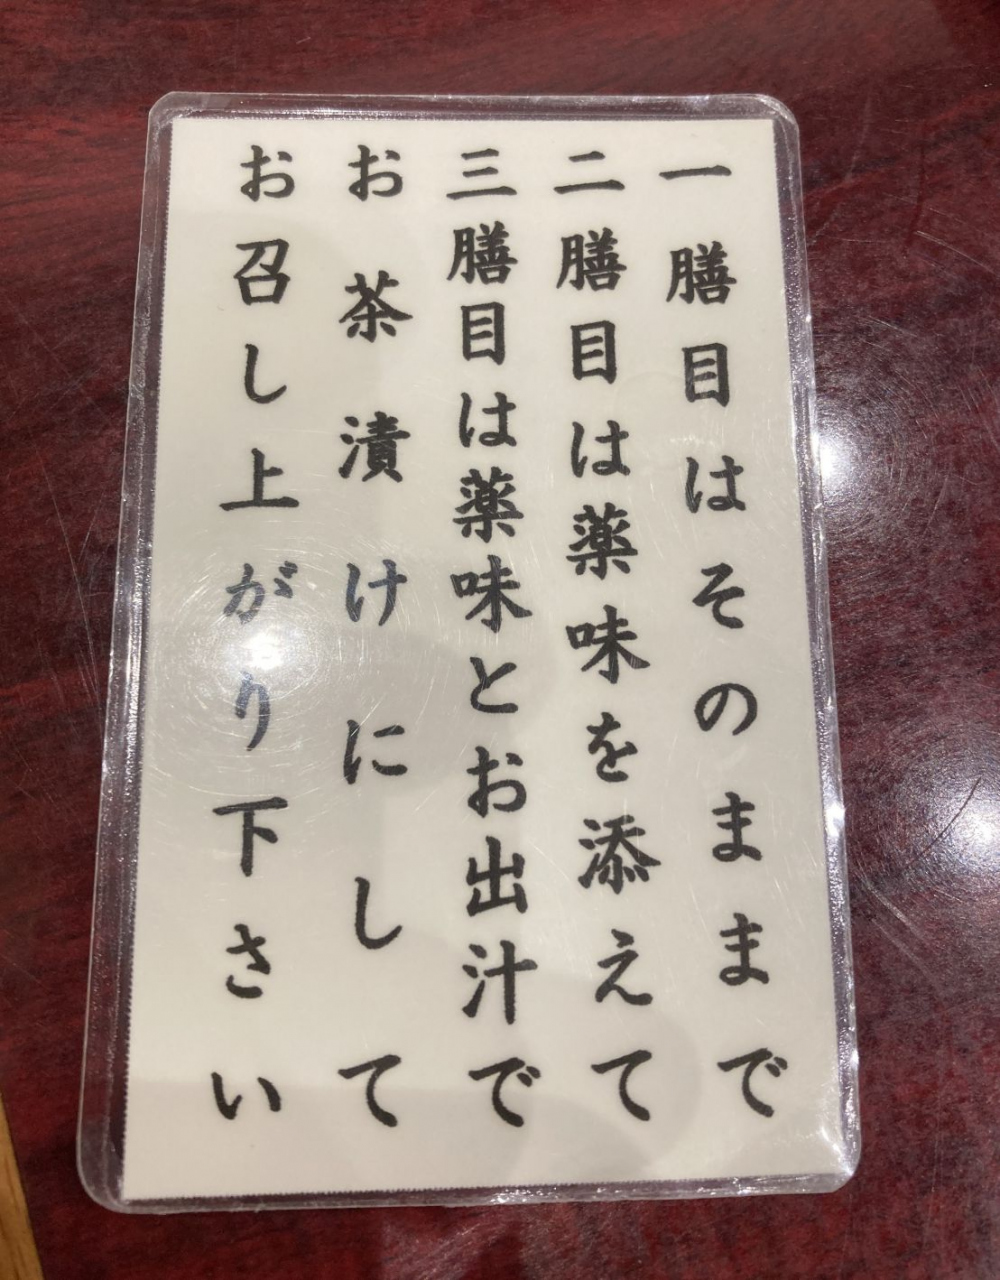 一膳目はそのままで
二膳目は薬味を添えて
三膳目は薬味とお出汁で
お茶漬けにして
お召し上がり下さい